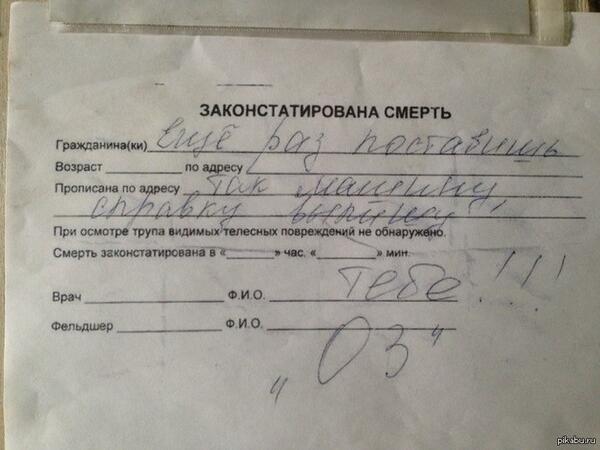 ЗАКОНСТАТИРОВАНА СМЕРТЬ
Гражданина(ки) ещё раз поставишь
Возраст ________ по адресу
Прописана по адресу так машину,
справку выпишу
При осмотре трупа видимых телесных повреждений не обнаружено.
Смерть законстатирована в «______» час. «________» мин.
тебе!!!
Врач ____________ Ф.И.О.
Фельдшер ____________ Ф.И.О.
„ОЗ“
pikabu.ru